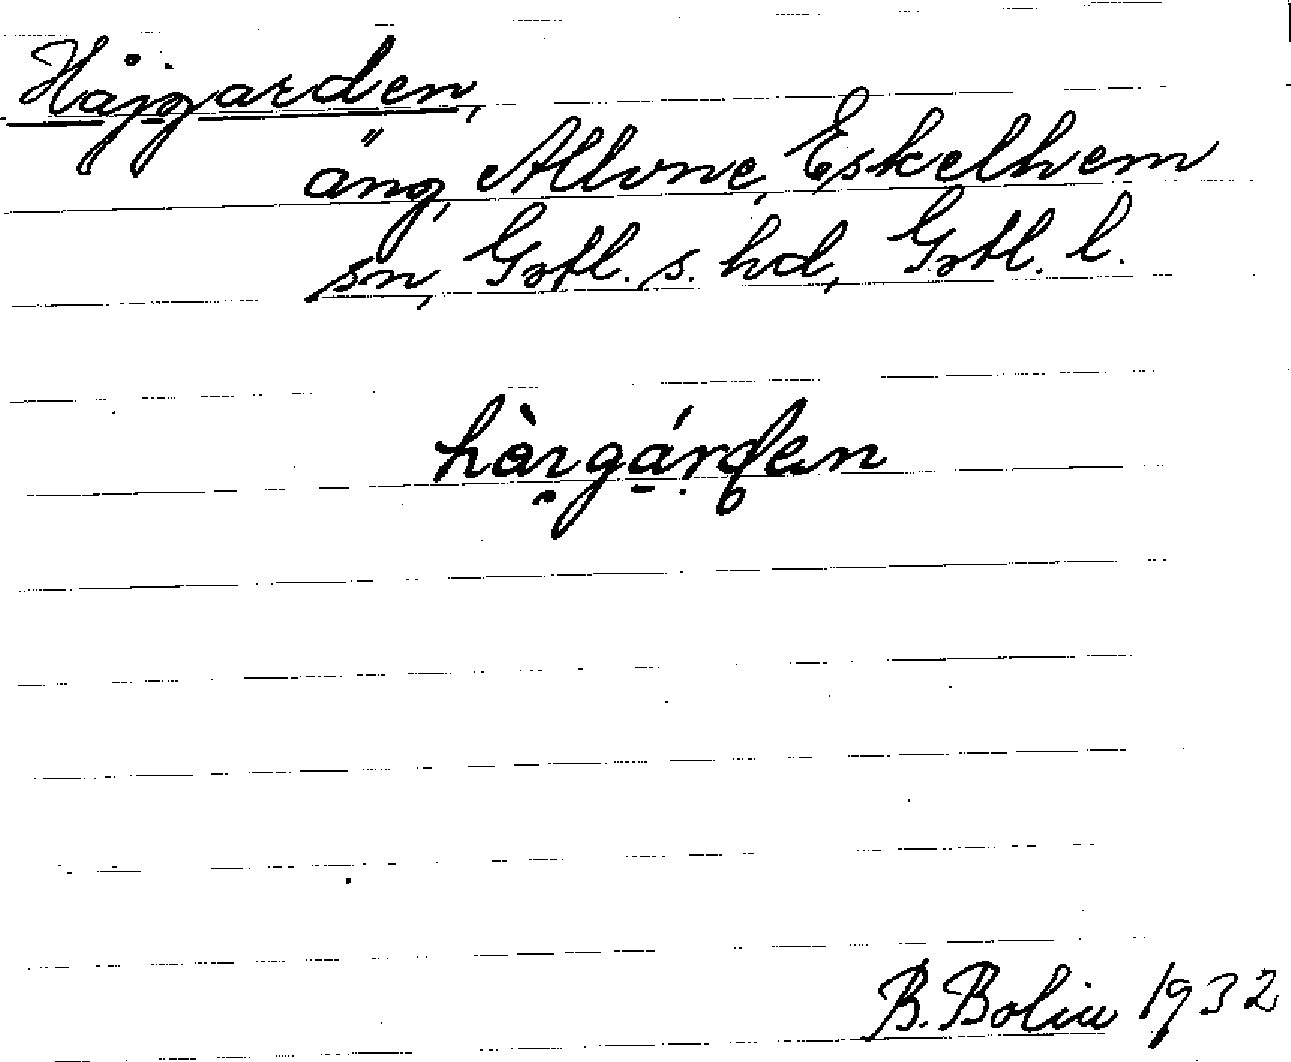 Håjgarden,
äng, Allvne, Eskelhem
sn, Gotl. s. hd, Gotl. l.
B. Bolin 1932